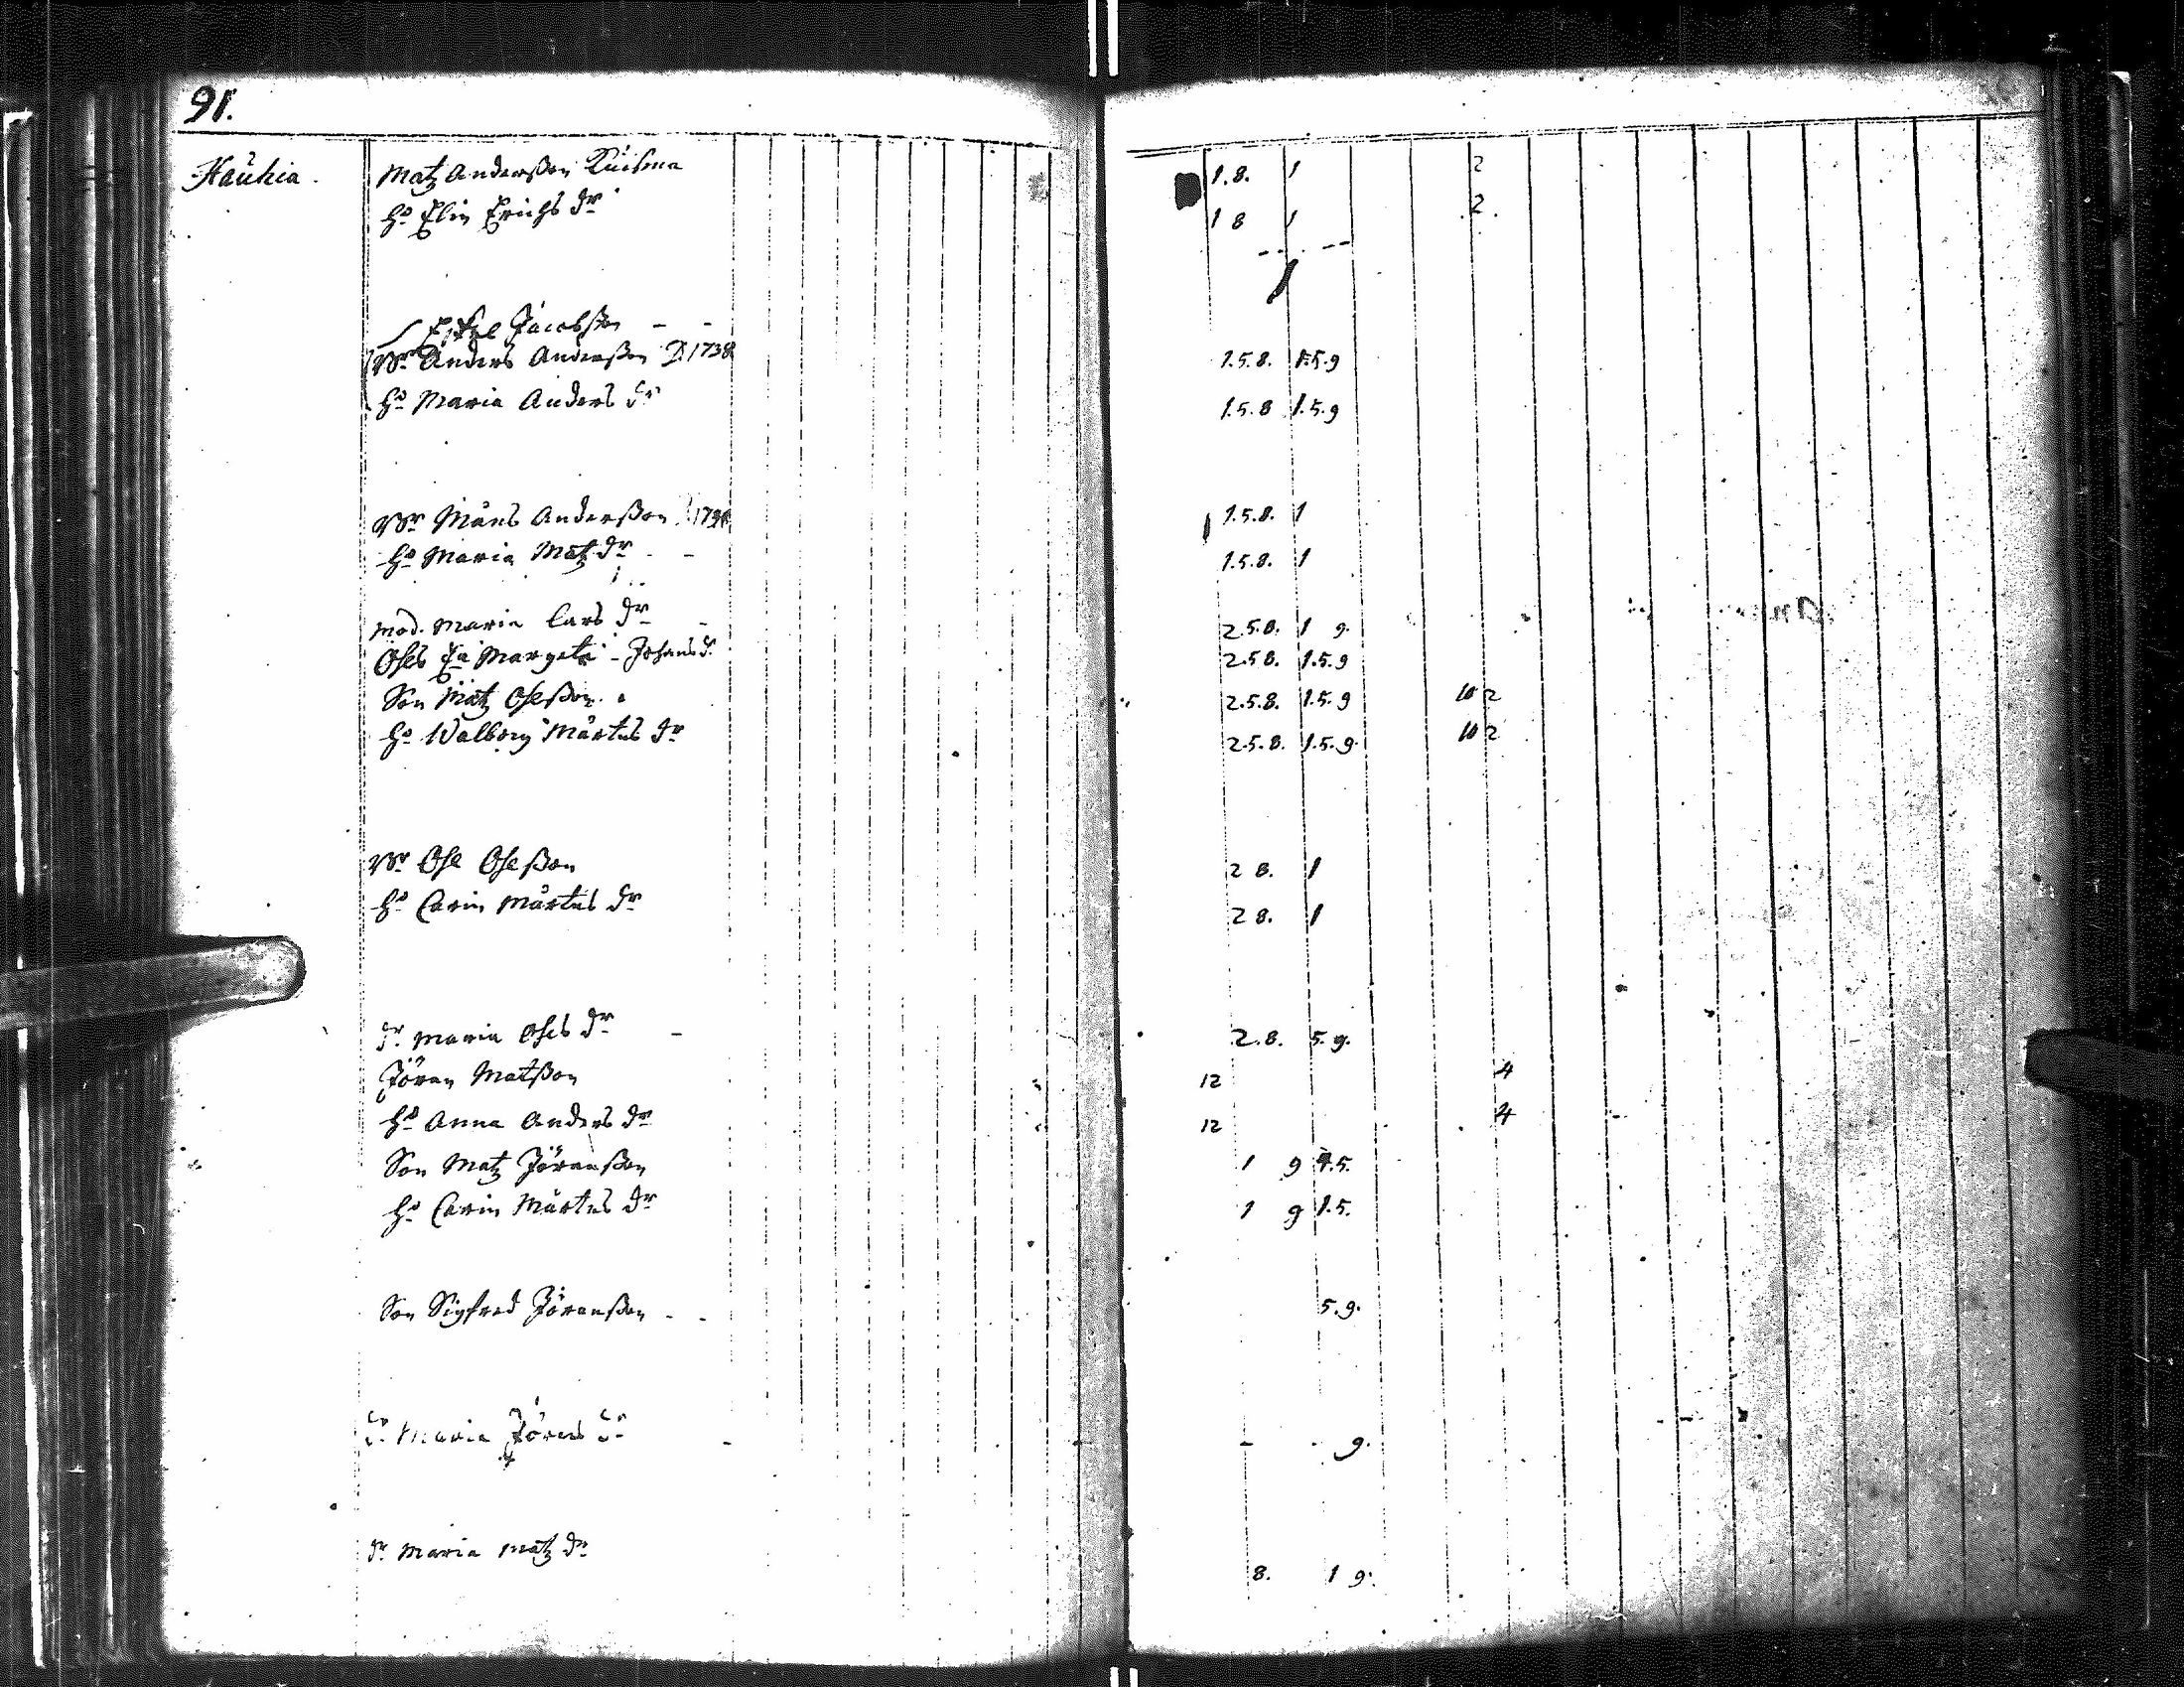 91.
Haühia. Matz Anderßon Kuisma 1.8. 1 2
ho Elin Erichs dr 1 8 1 2.
Eskel Jacobßon - -
Br Anders Anderßon D. 1738 1.5.8. 1.5.9
ho Maria Anders dr 1.5.8 1.5.9
Br Måns Anderßon 1.5.8. 1
ho Maria Matz dr - - 1.5.8. 1
mod. Maria Lars dr - 2.5.8. 1 9.
Oles Ea Margeta - Johans d. 2.5 8. 1.5.9
Son Matz Oleßon. 2.5.8. 1.5.9 10 2
ho Walborg Mårtens dr 2.5.8. 1.5.9. 10 2
Br Ole Oleßon 2 8. 1
ho Carin Mårtens dr 2 8. 1
dr Maria Oles dr - 2.8. 5.9.
Jöran Matßon 12 4
ho Anna Anders dr 12 4
Son Matz Jöranßon 1 9 1.5.
ho Carin Mårtens dr 1 9 1.5.
Son Sigfred Jöranßon - - 5.9.
dr Maria Jörans dr - - 9.
dr Maria Matz dr 8. 1 9.